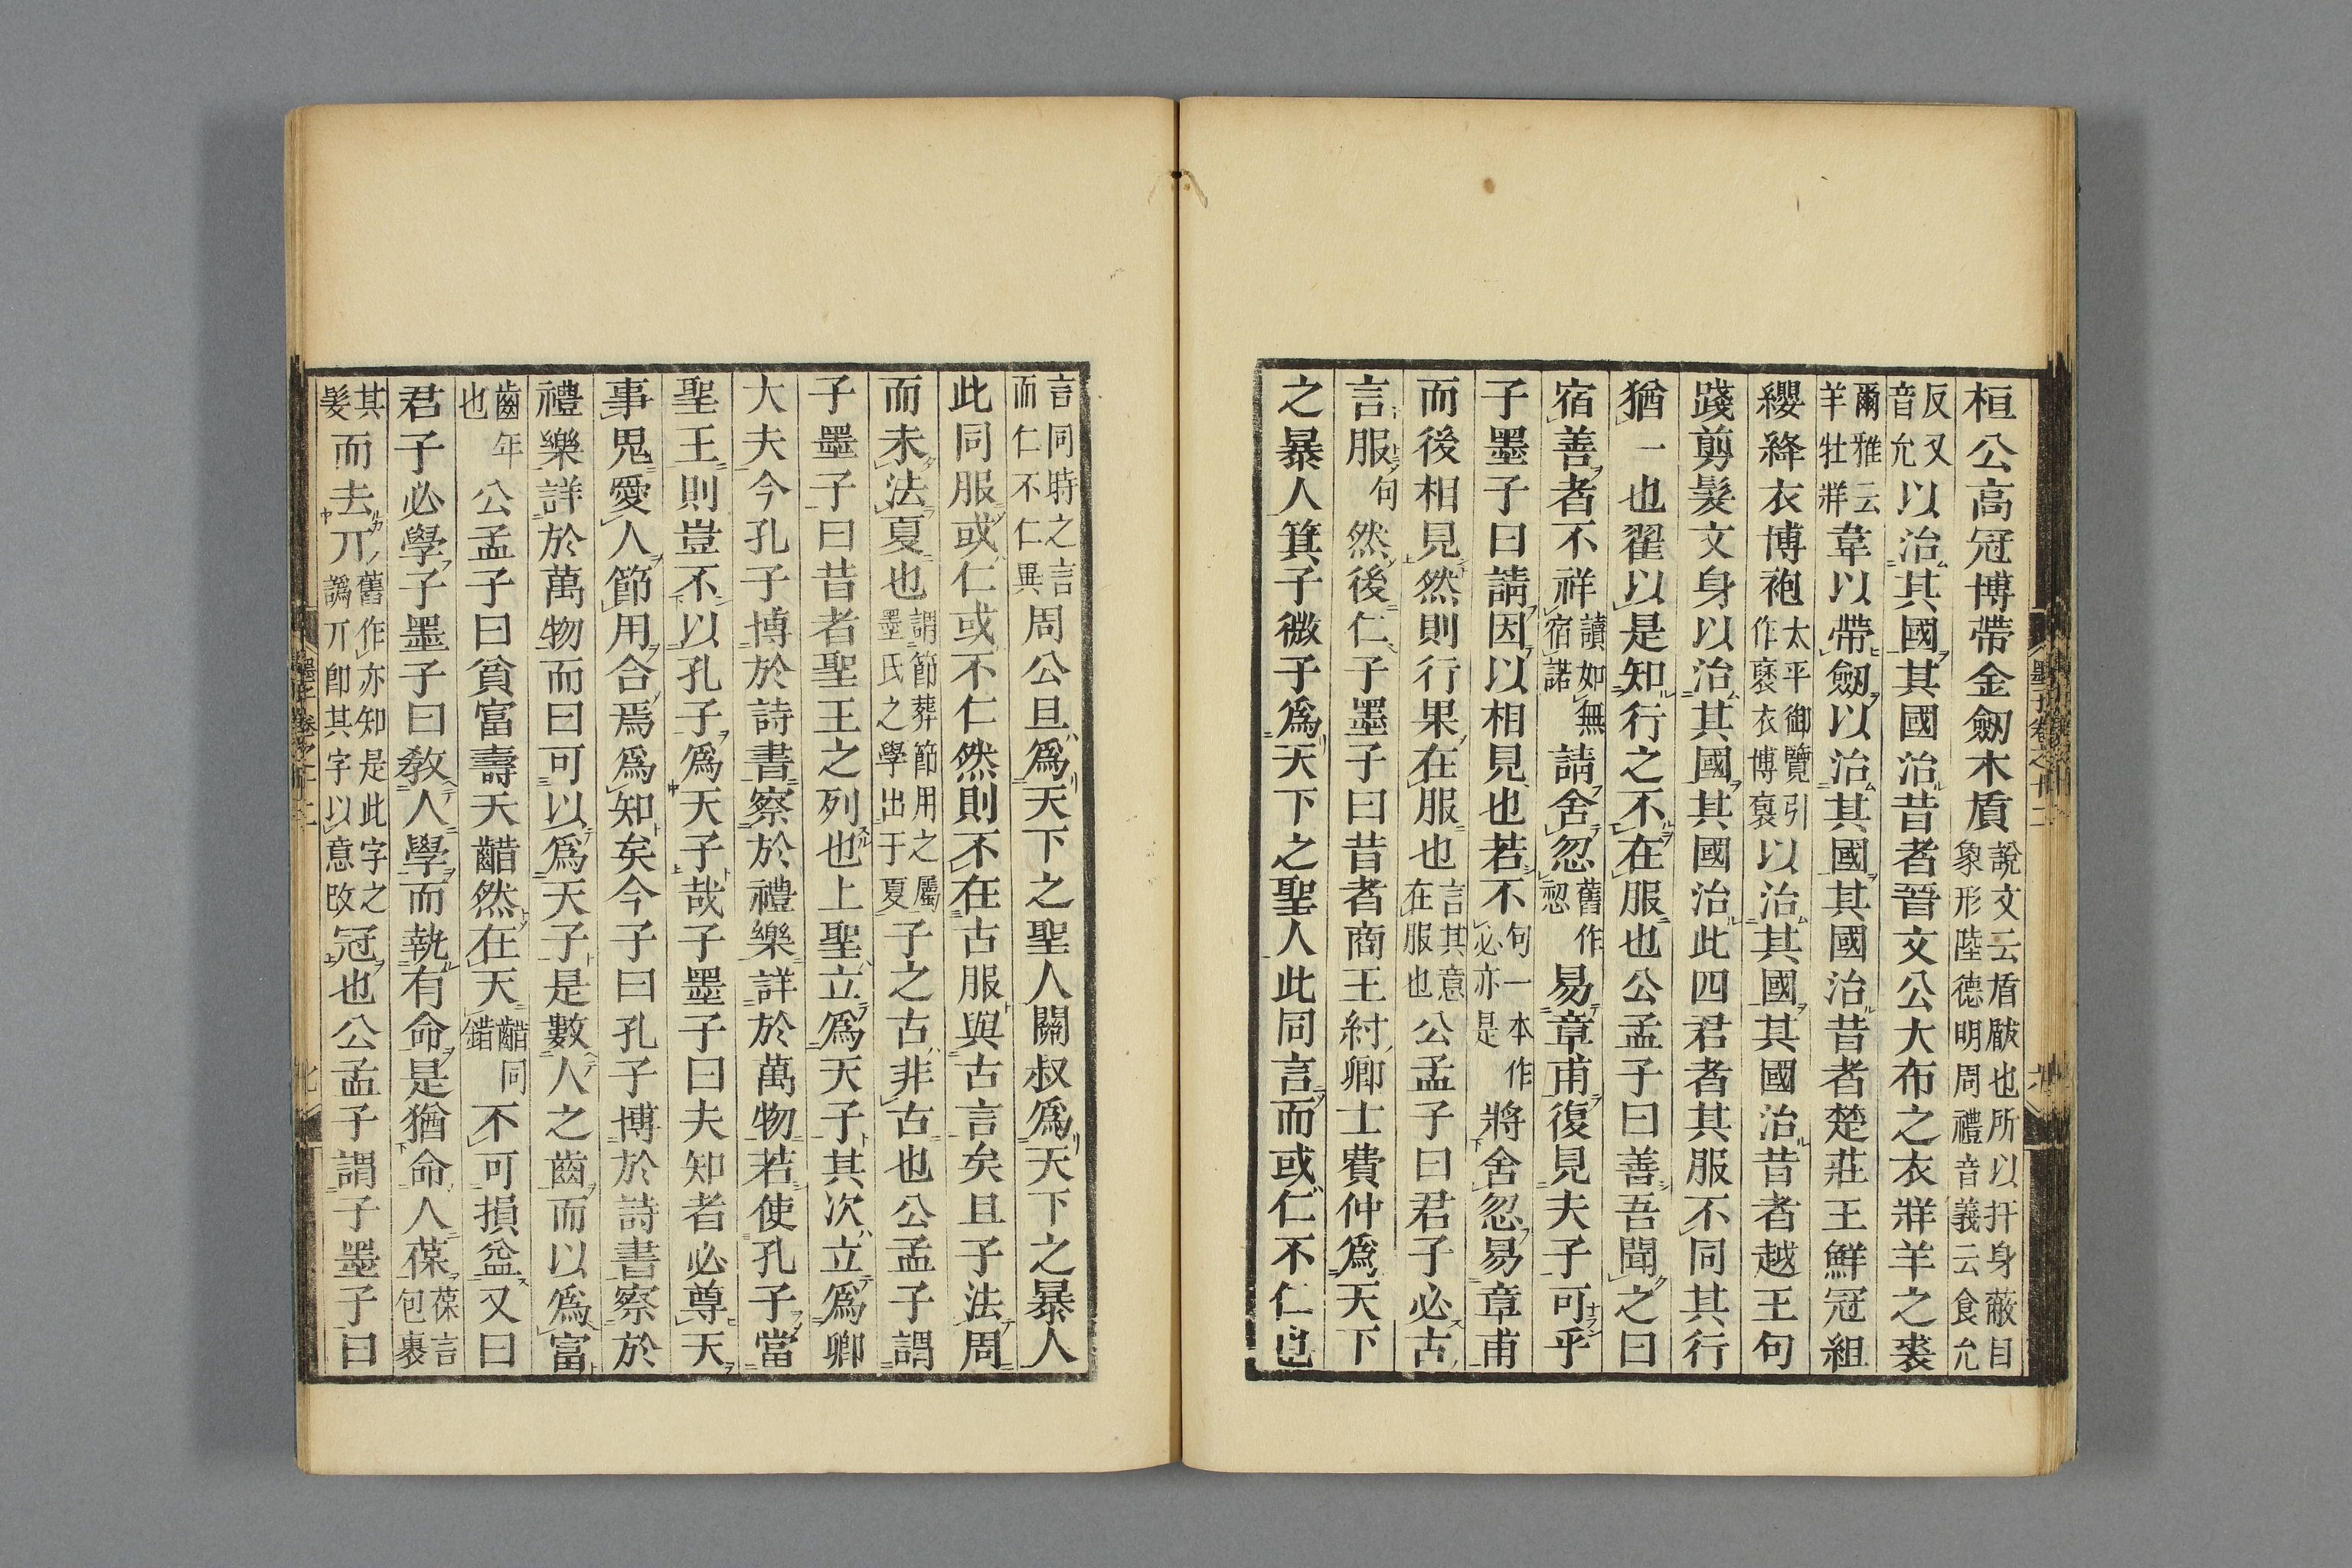 桓公高冠博帶金劒木盾說文云盾瞂也所以扞身蔽目象形陸德明周禮音義云食允
反又音允以治其國其國治昔者晉文公大布之衣牂羊之裘
爾雅云羊牡牂韋以帶劒以治其國其國治昔者楚莊王鮮冠組
纓絳衣博袍太平御覽引作裦衣博裒以治其國其國治昔者越王句
踐剪髮文身以治其國其國治此四君者其服不同其行
猶一也翟以是知行之不在服也公孟子曰善吾聞之曰
宿善者不祥讀如無宿諾請舍忽舊作惚易章甫復見夫子可乎
子墨子曰請因以相見也若不句一本作必亦是將舍忽易章甫
而後相見然則行果在服也言其意在服也公孟子曰君子必古
言服句然後仁子墨子曰昔者商王紂卿士費仲爲天下
之暴人箕子微子爲天下之聖人此同言而或仁不仁也
言同時之言而仁不仁異周公旦爲天下之聖人關叔爲天下之暴人
此同服或仁或不仁然則不在古服與古言矣且子法周
而未法夏也謂節葬節用之屬墨氏之學出于夏子之古非古也公孟子謂
子墨子曰昔者聖王之列也上聖立爲天子其次立爲卿
大夫今孔子博於詩書察於禮樂詳於萬物若使孔子當
聖王則豈不以孔子爲天子哉子墨子曰夫知者必尊天
事鬼愛人節用合焉爲知矣今子曰孔子博於詩書察於
禮樂詳於萬物而曰可以爲天子是數人之齒而以爲富
齒年也公孟子曰貧富壽夭齰然在天齰同錯不可損益又曰
君子必學子墨子曰敎人學而執有命是猶命人葆葆言包裹
其髮而去丌舊作亦知是此字之譌丌卽其字以意改冠也公孟子謂子墨子曰